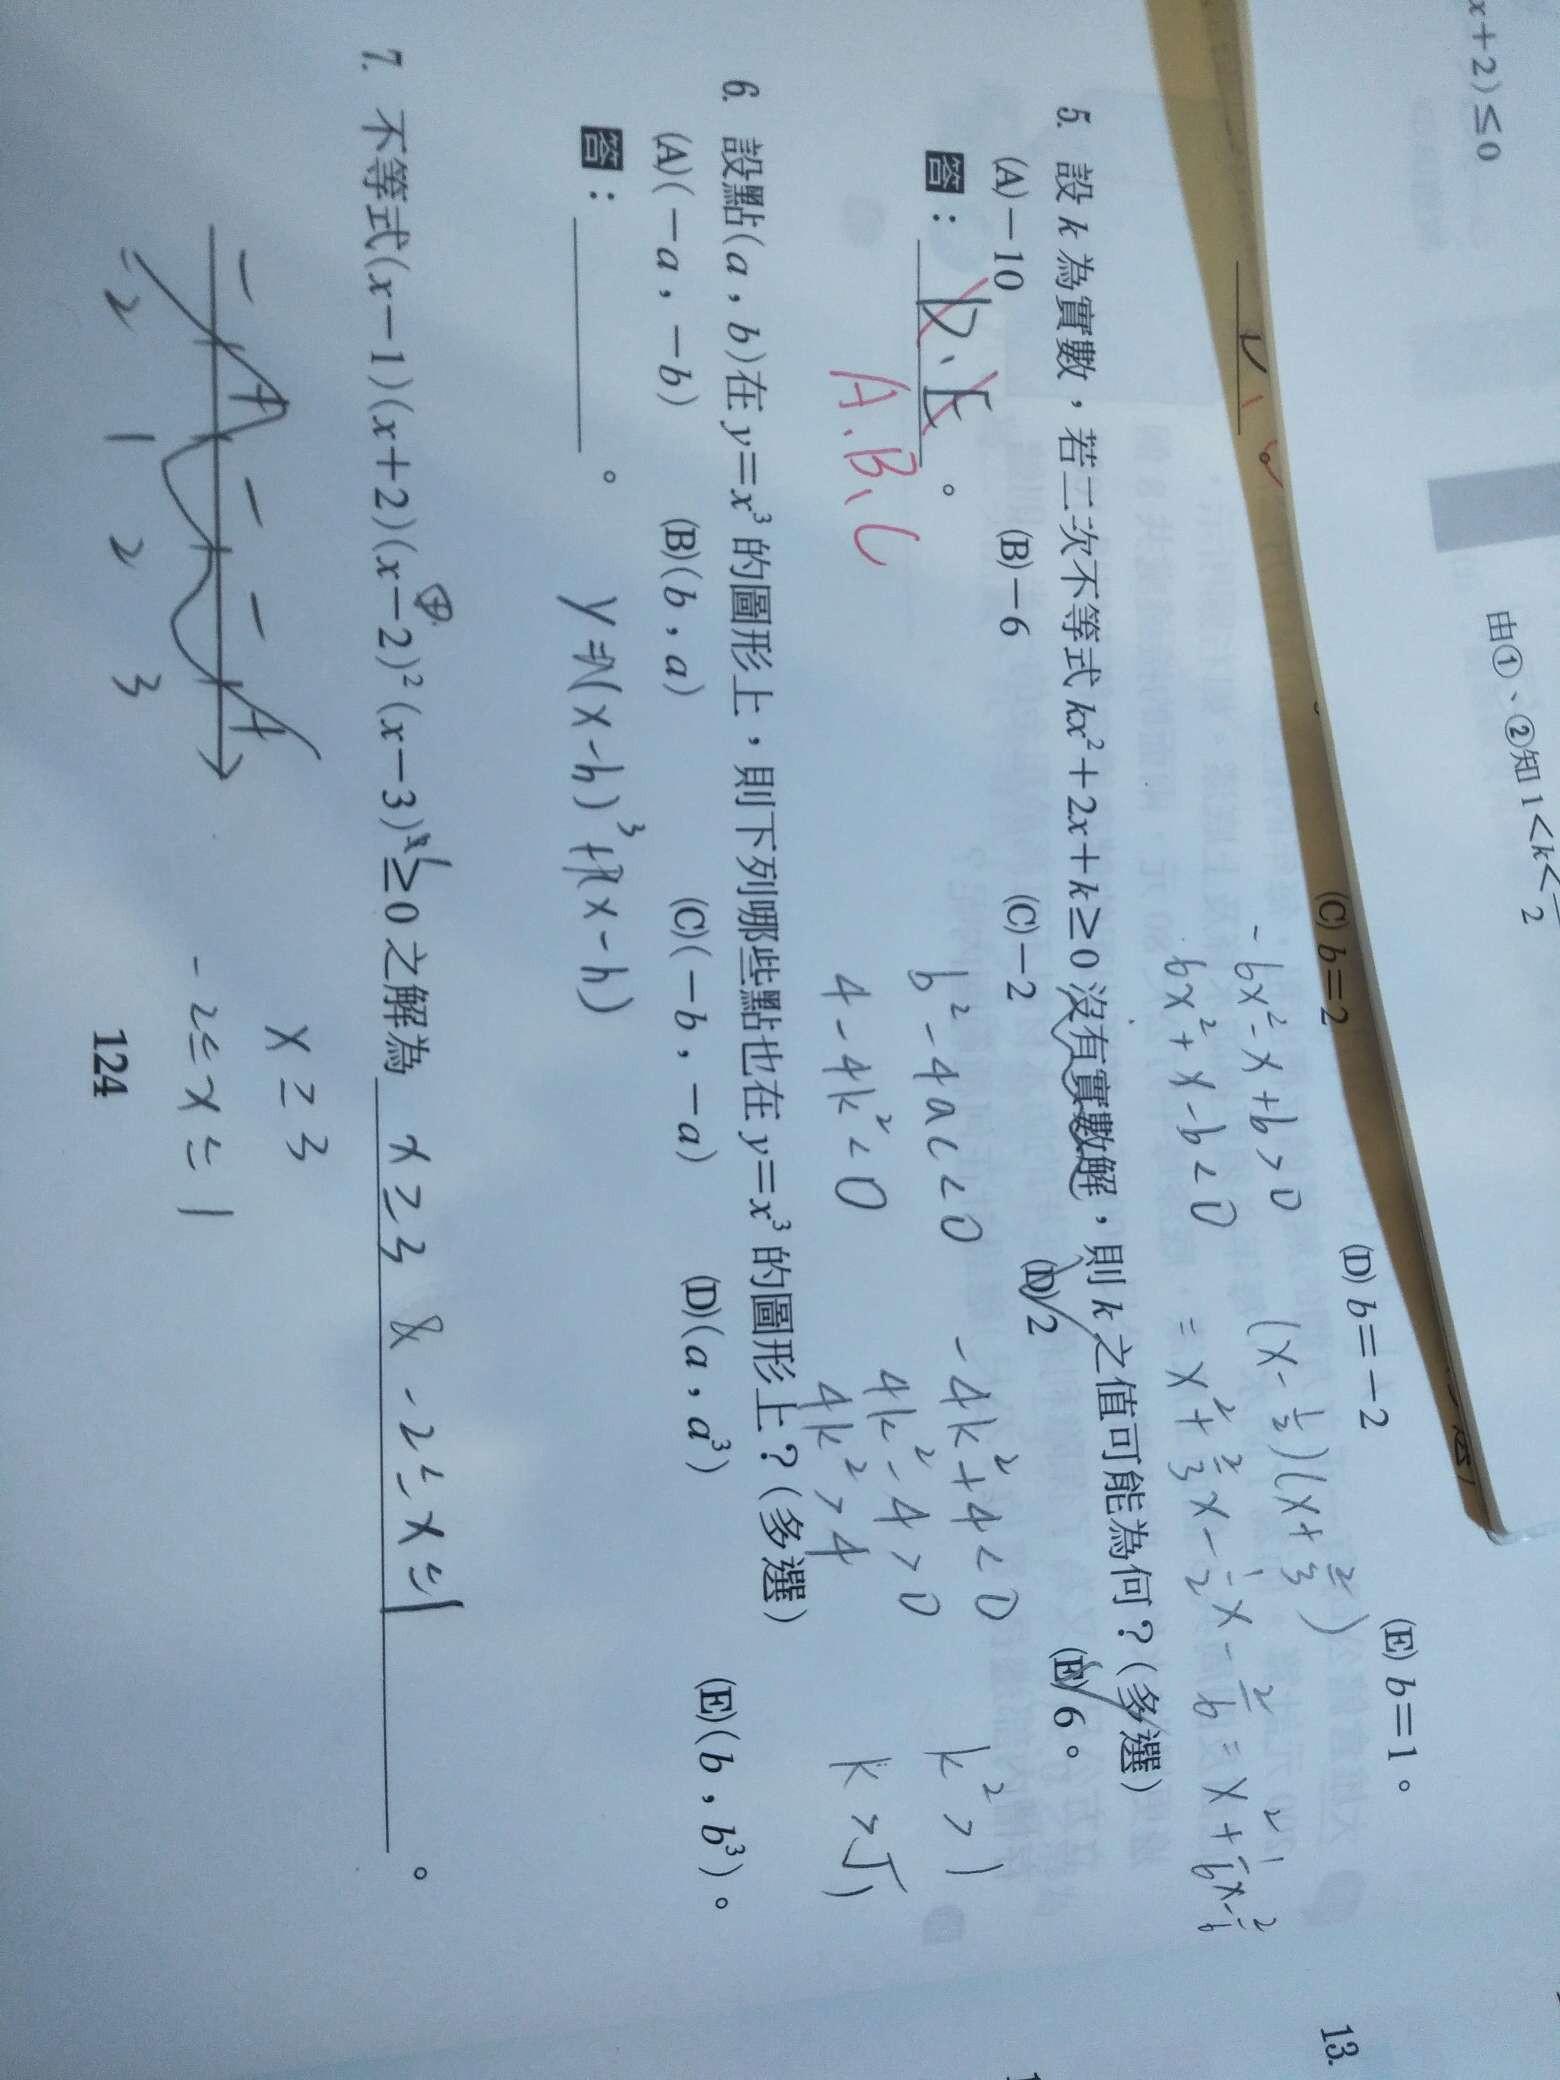 x+2)≤0
由①、②知1<k<
2
(C) b=2
(D) b=−2
(E) b=1。
-6x²-x+6>0
6x²+x-6<0
(x-1/2)(x+2/3)
=x²+2/3x-1/2x-2/6=x²+1/6x-2/6
5. 設k為實數，若二次不等式kx²+2x+k≥0沒有實數解，則k之值可能為何？(多選)
(A)−10 (B)−6 (C)−2 (D) 2 (E) 6。
答：D、E。
A、B、C
b²-4ac<0
4-4k²<0
-4k²+4<0
4k²-4>0
4k²>4
k²>1
6. 設點(a，b)在y=x³的圖形上，則下列哪些點也在y=x³的圖形上？(多選)
(A)(−a，−b) (B)(b，a) (C)(−b，−a) (D)(a，a³) (E)(b，b³)。
答：。
7. 不等式(x−1)(x+2)(x−2)²(x−3)≥0之解為 x≥3 & -2≤x≤1。
- + - - +
-2 1 2 3
x≥3
-2≤x≤1
124
13.